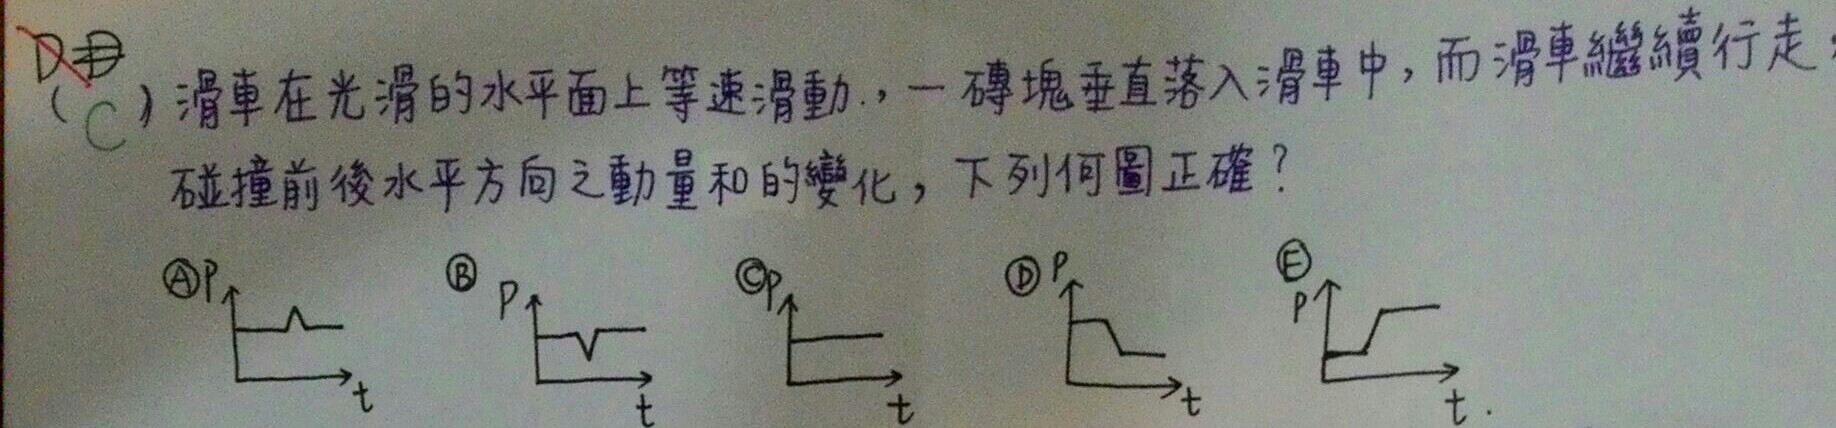 D D
(C)滑車在光滑的水平面上等速滑動.,一磚塊垂直落入滑車中,而滑車繼續行走,
碰撞前後水平方向之動量和的變化,下列何圖正確?
Ⓐ P t Ⓑ P t Ⓒ P t Ⓓ P t Ⓔ P t.